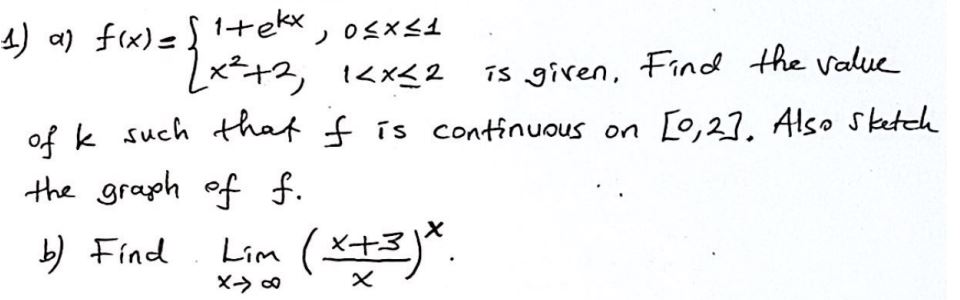 1) a) f(x) = { 1+e^{kx}, 0≤x≤1
x²+2, 1<x≤2 is given. Find the value
of k such that f is continuous on [0,2]. Also sketch
the graph of f.
b) Find Lim_{x→∞} ((x+3)/x)^x.